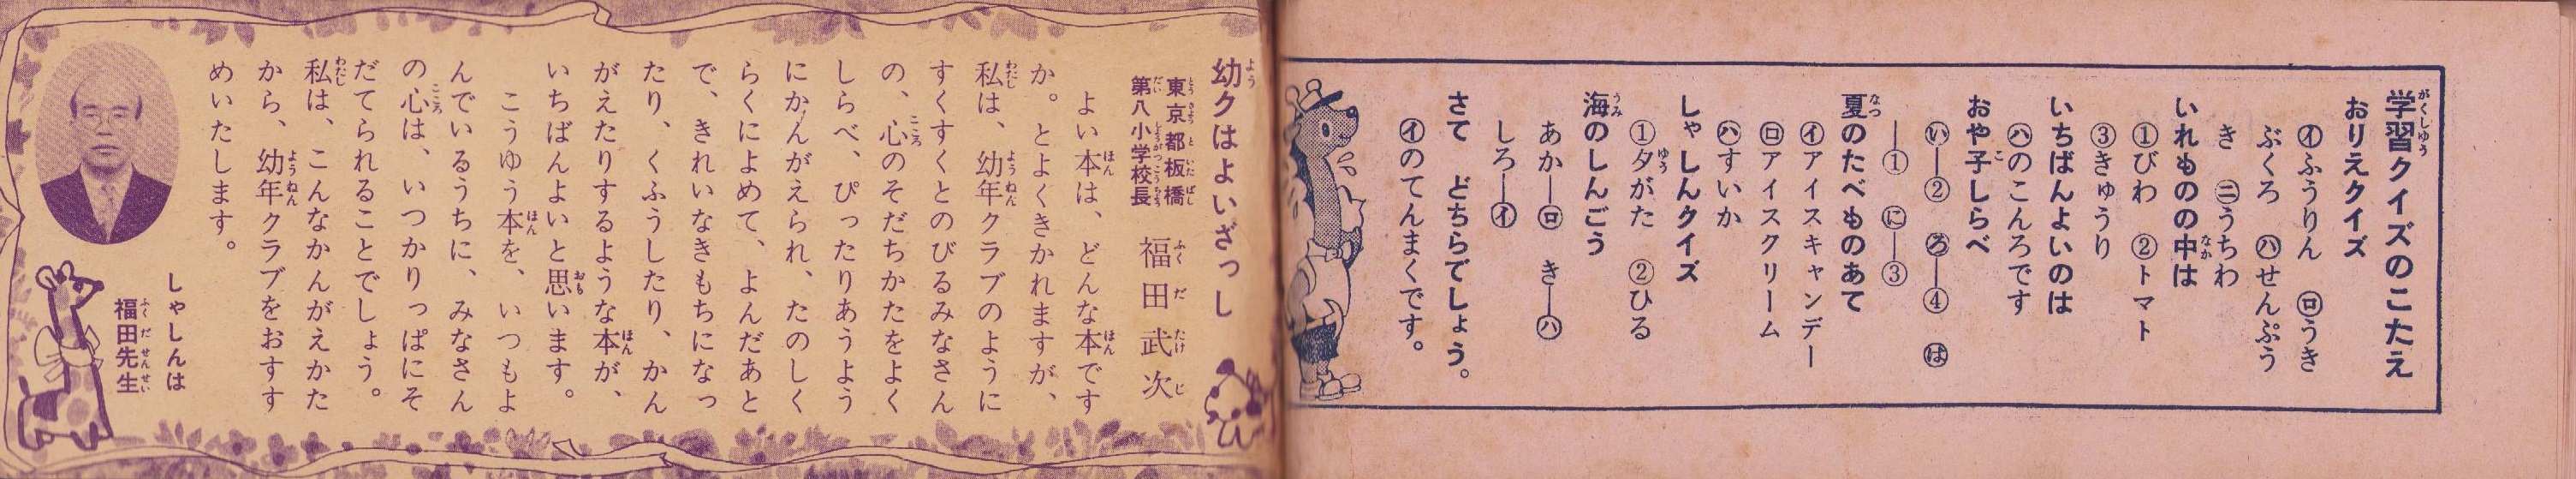 学習クイズのこたえ
おりえクイズ
㋑ふうりん　㋺うき
ぶくろ　㋩せんぷう
き　㊁うちわ
いれものの中は
①びわ　②トマト
③きゅうり
いちばんよいのは
㋩のこんろです
おや子しらべ
ⓘ—②　ろ—④　は
—①　に—③
夏のたべものあて
㋑アイスキャンデー
㋺アイスクリーム
㋩すいか
しゃしんクイズ
①夕がた　②ひる
海のしんごう
あか—㋺　き—㋩
しろ—㋑
さて　どちらでしょう。
㋑のてんまくです。
幼クはよいざっし
東京都板橋
第八小学校長
福田武次
よい本は、どんな本です
か。とよくきかれますが、
私は、幼年クラブのように
すくすくとのびるみなさん
の、心のそだちかたをよく
しらべ、ぴったりあうよう
にかんがえられ、たのしく
らくによめて、よんだあと
で、きれいなきもちになっ
たり、くふうしたり、かん
がえたりするような本が、
いちばんよいと思います。
こうゆう本を、いつもよ
んでいるうちに、みなさん
の心は、いつかりっぱにそ
だてられることでしょう。
私は、こんなかんがえかた
から、幼年クラブをおすす
めいたします。
しゃしんは
福田先生